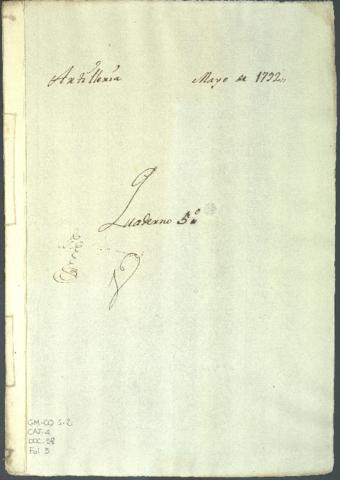 Artilleria Mayo de 1792,,
Quaderno 5º
GM-CO S-2
CAJ-4
DOC-58
Fol 3